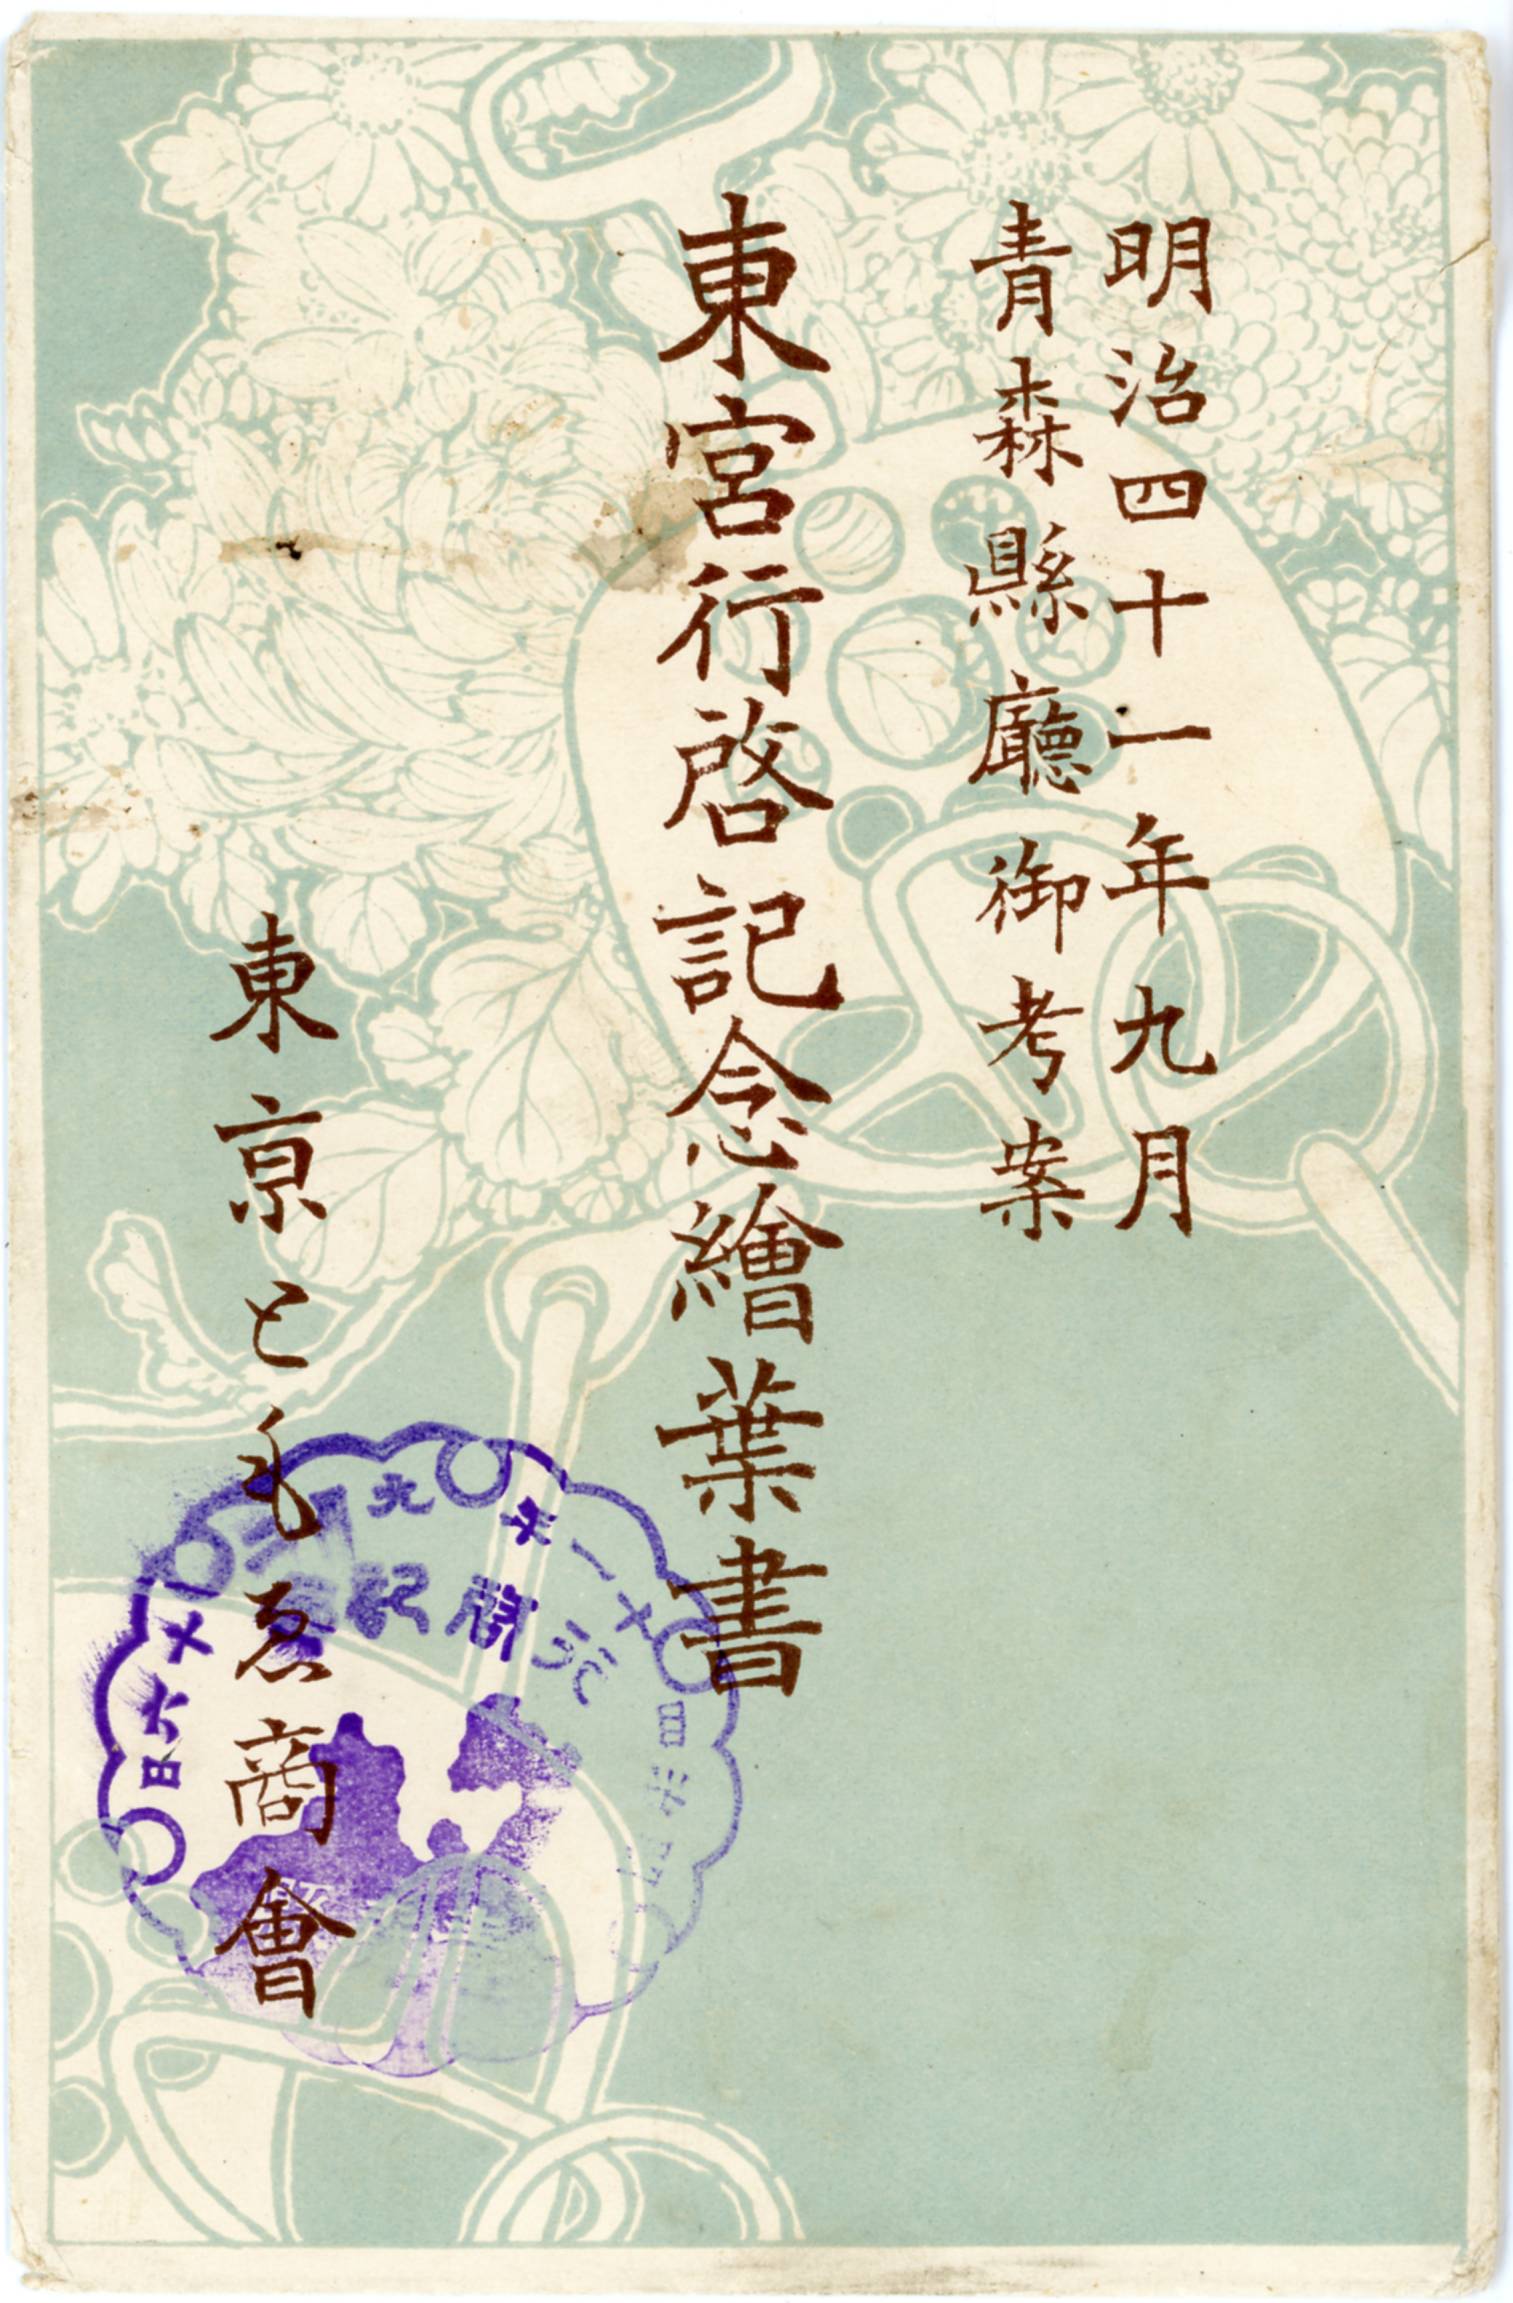 明治四十一年九月
青森縣廳御考案
東宮行啓記念繪葉書
東亰ともゑ商會
行啓記